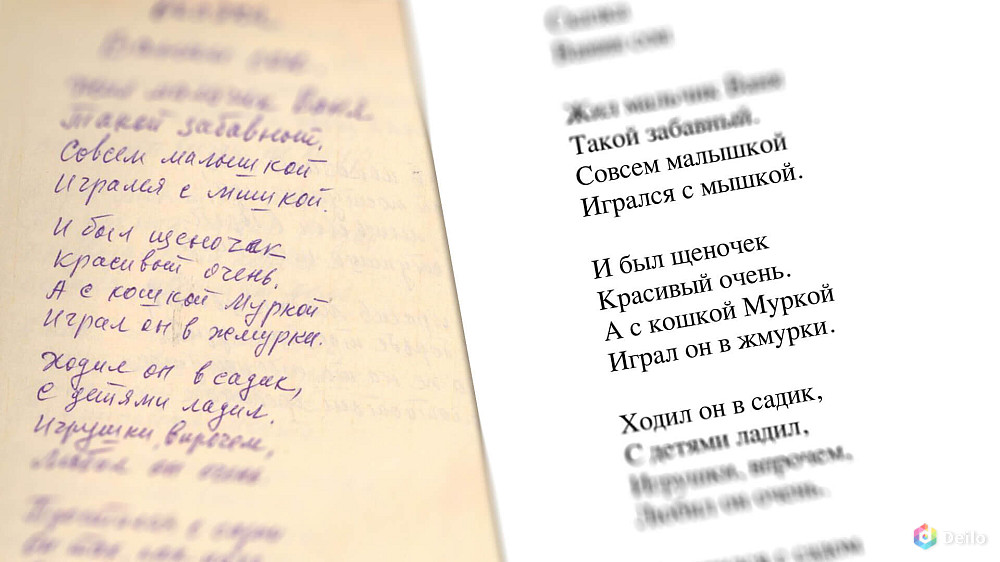 Жил мальчик Ваня
Такой забавный,
Совсем малышкой
Игрался с мишкой.
И был щеночек
Красивый очень.
А с кошкой Муркой
Играл он в жмурки.
Ходил он в садик,
С детями ладил.
Игрушки, впрочем,
Любил он очень
Сказка
Ванин сон
Жил мальчик Ваня
Такой забавный.
Совсем малышкой
Игрался с мышкой.
И был щеночек
Красивый очень.
А с кошкой Муркой
Играл он в жмурки.
Ходил он в садик,
С детями ладил,
Игрушки, впрочем,
Любил он очень.
с садом
Deilo